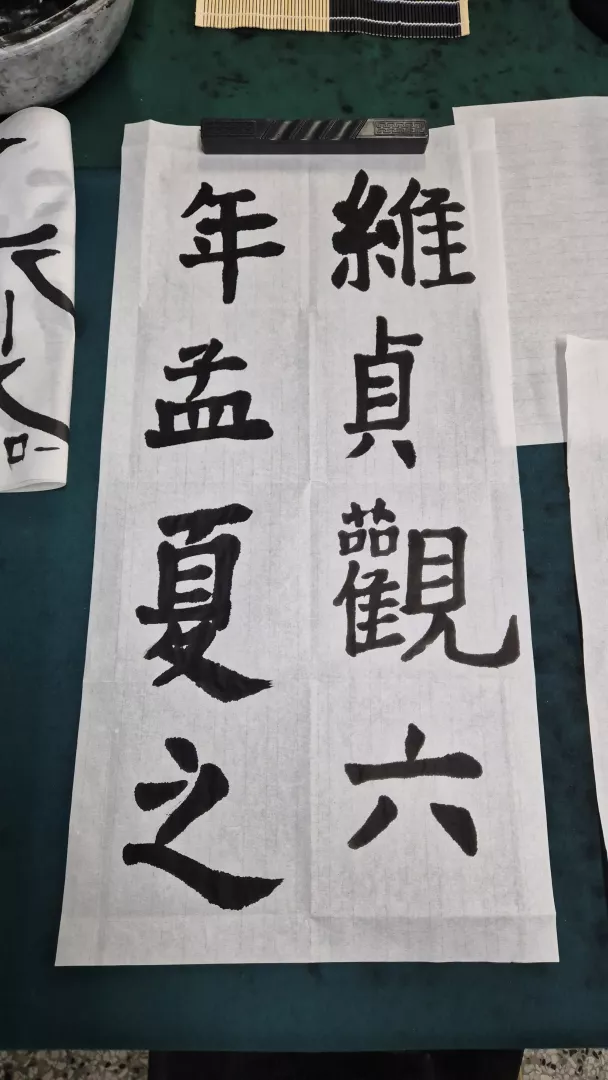 維貞觀六
年孟夏之